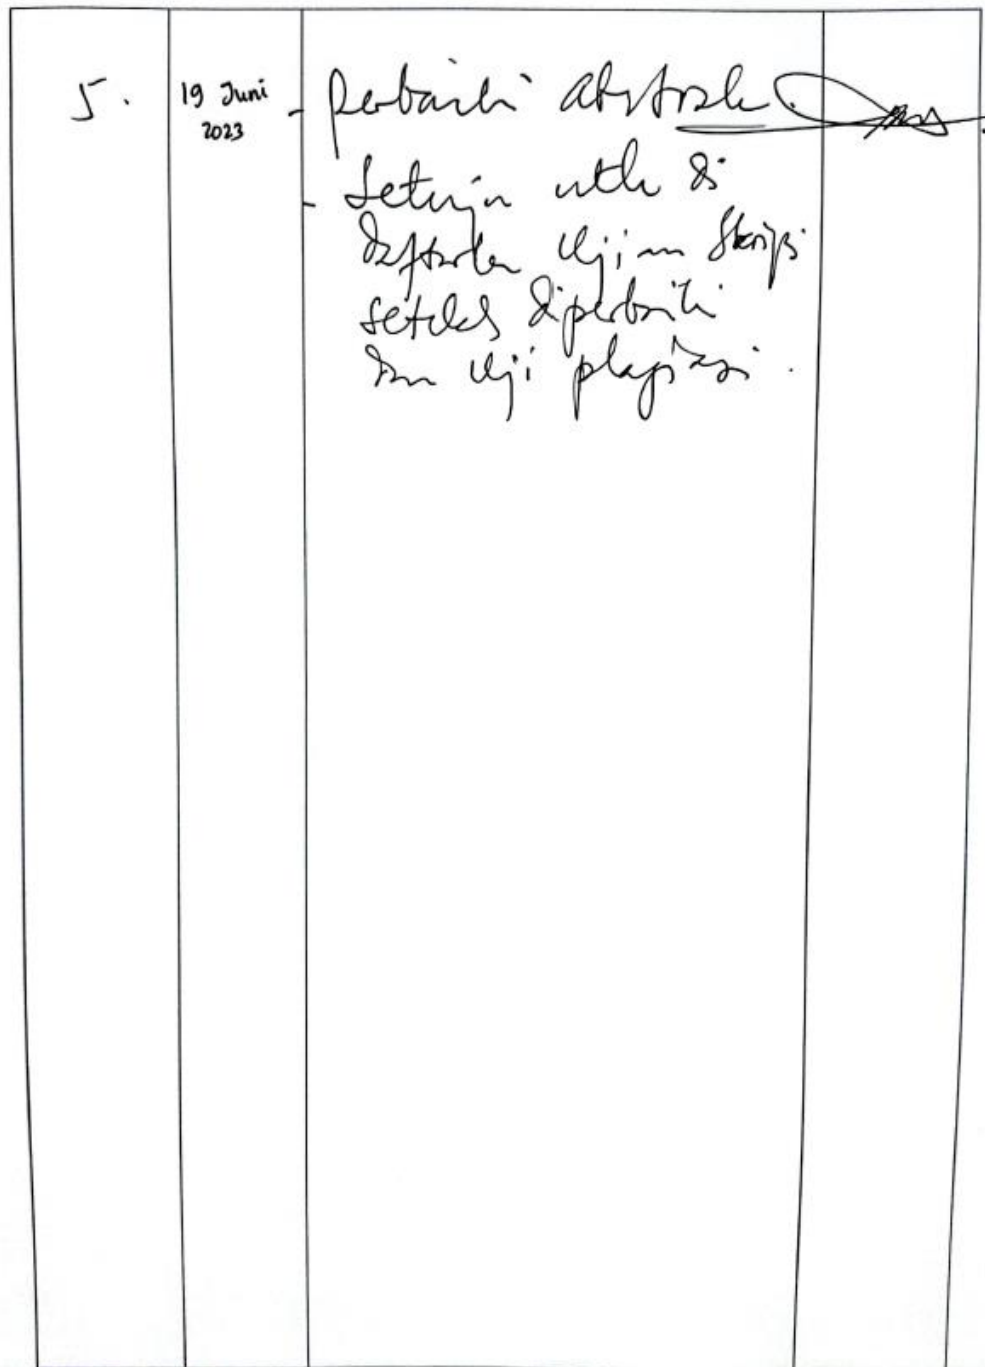 5.
19 Juni
2023
- perbaiki abstrak.
- Setuju utk di
daftarkan Ujian Skripsi
setelah diperbaiki
dan Uji plagiasi.